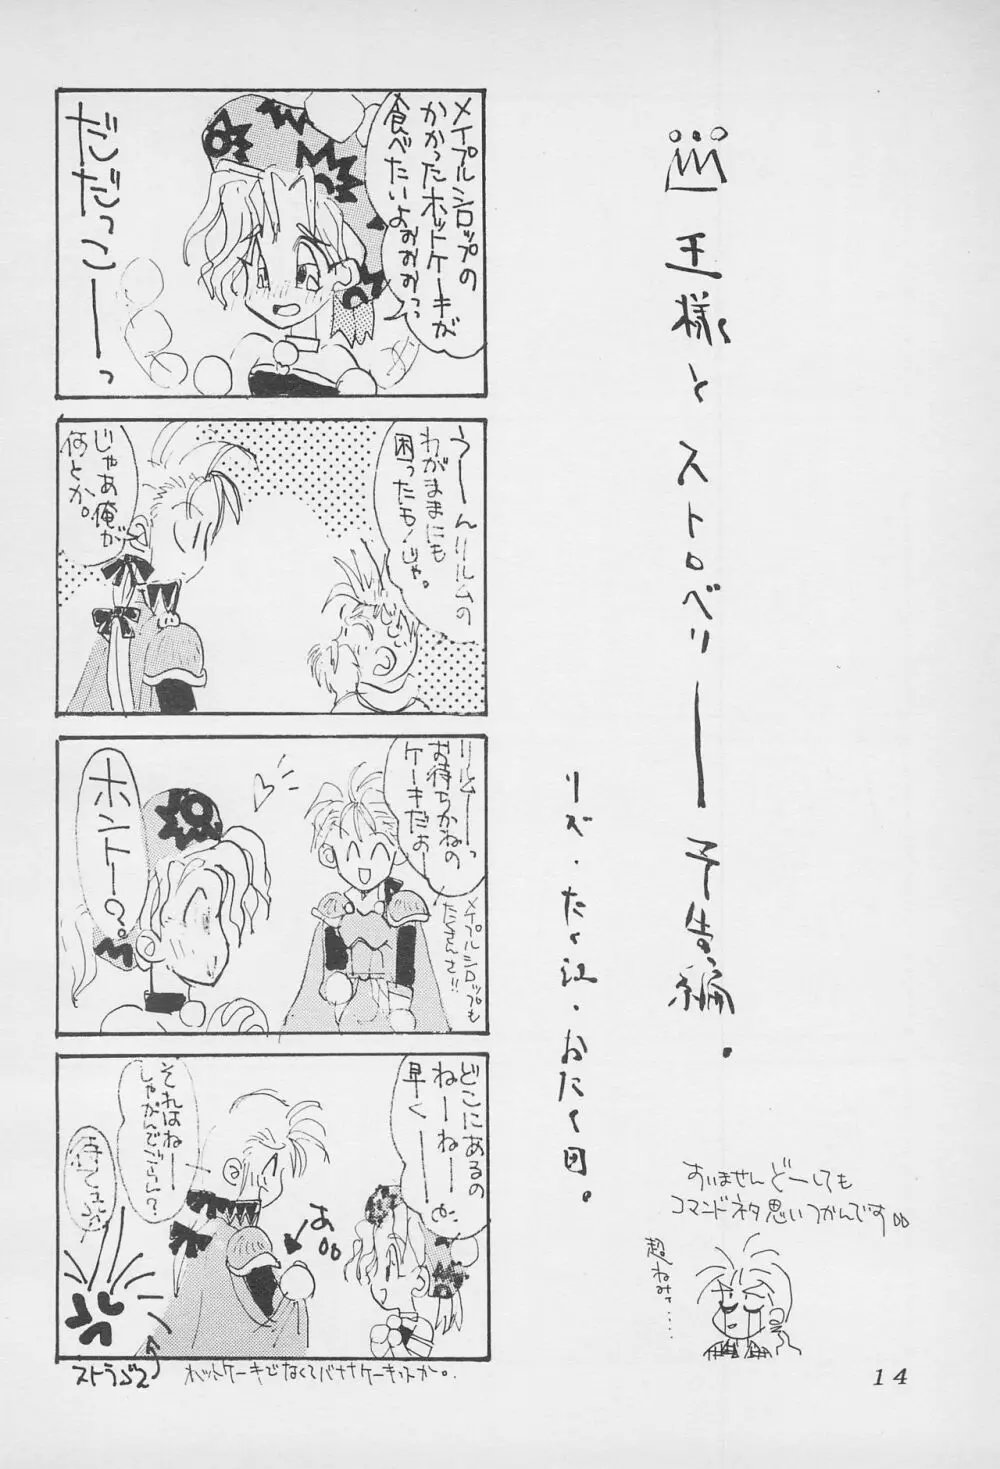 王様とストロベリー予告編。
リズ・たく江・おたく田。
メイプルシロップの
かかったホットケーキが
食べたいよぉぉぉっ
だだっこーっ
うーんリルムの
わがままにも
困ったもんじゃ。
じゃあ俺が
何とか。
リルムーっ
お待ちかねの
ケーキだぉー
メイプルシロップも
たくさんさ!!
ホントー?
どこにあるの
ねーねー
早くー
あ
それはねー
しゃがんでごらん?
ストラゴス
ホットケーキでなくてバナナケーキっすか。
すいませんどーしても
コマンドネタ思いつかんです
超ねみァ・・・・・
14